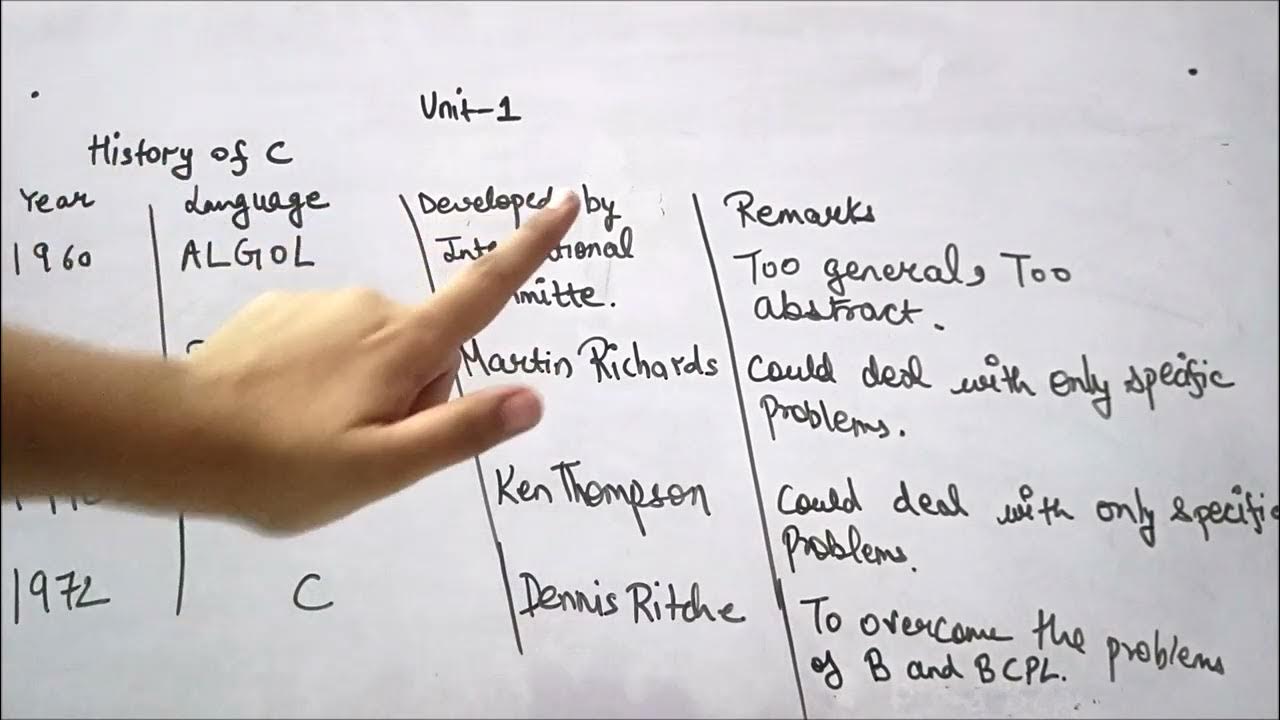 Unit-1
History of C
Year Language Developed by Remarks
1960 ALGOL Too general, Too
abstract.
Martin Richards Could deal with only specific
problems.
Ken Thompson Could deal with only specific
problems.
1972 C Dennis Ritche To overcome the problems
of B and BCPL.